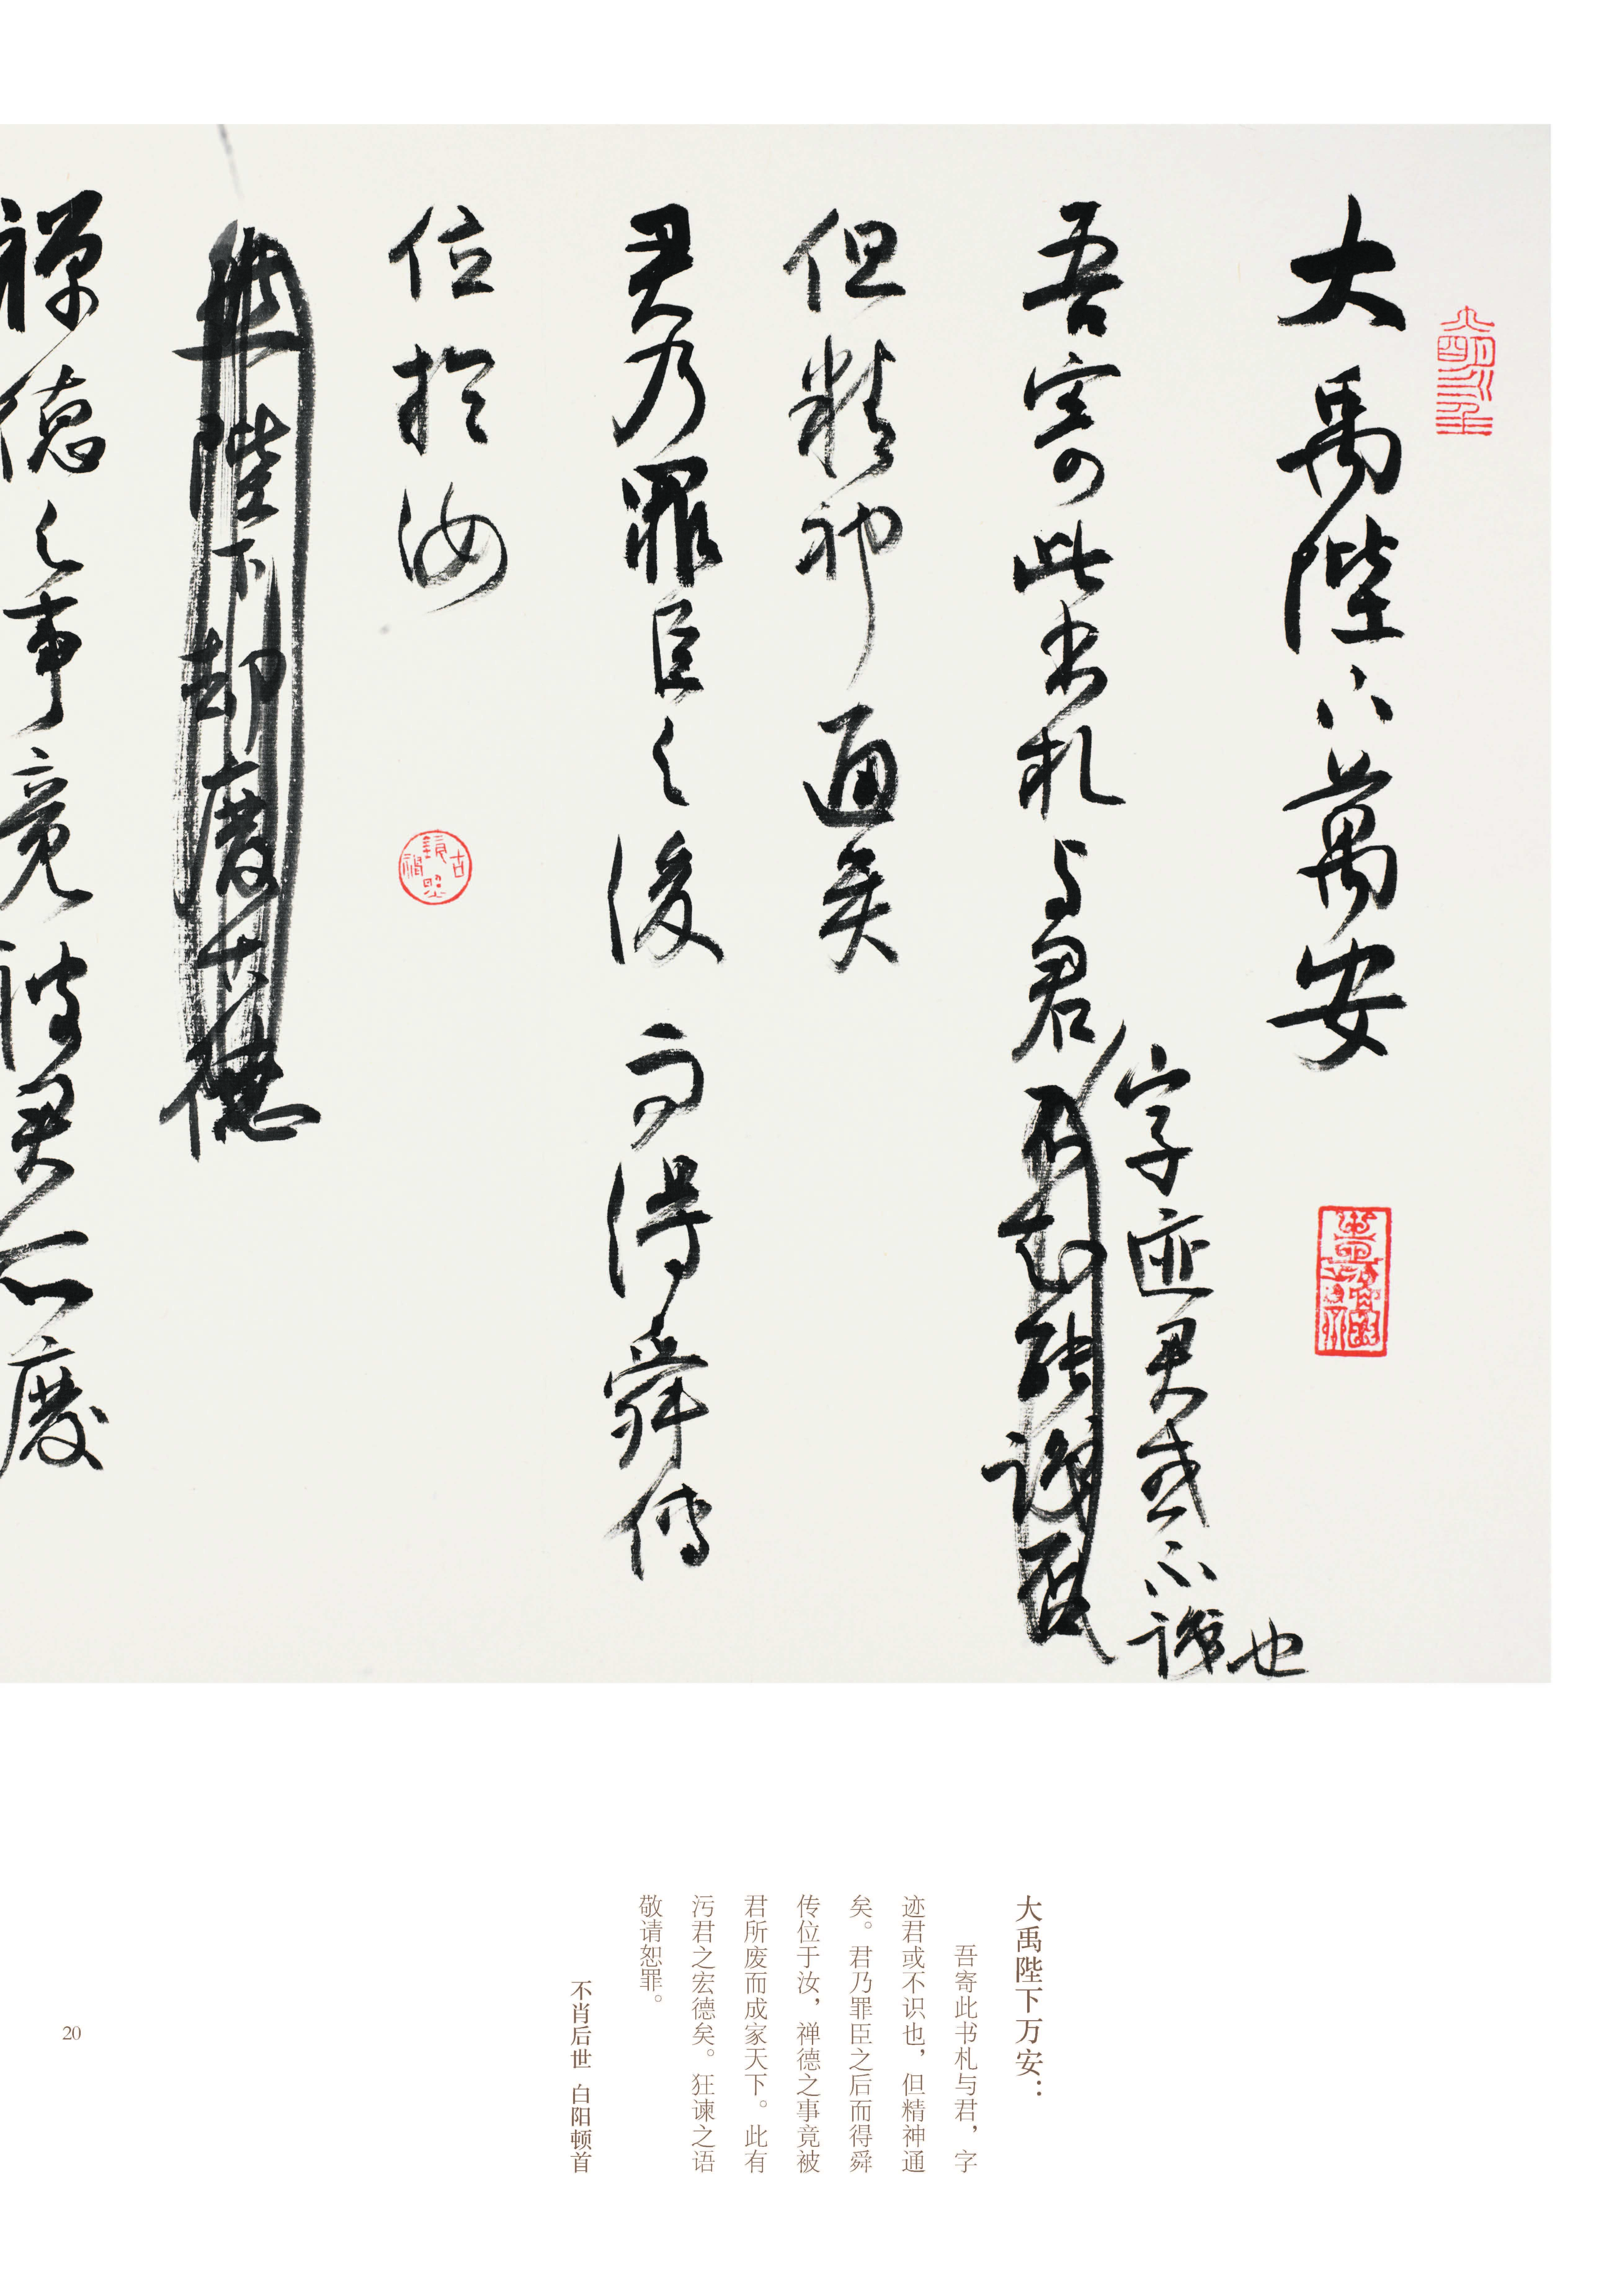 大禹陛下萬安
吾寄此书札与君
字迹君或不識也
但精神通矣
君乃罪臣之後而得舜传
位於汝
陛下却废大德
禅德之事竟被君所废
大禹陛下万安：
吾寄此书札与君，字
迹君或不识也，但精神通
矣。君乃罪臣之后而得舜
传位于汝，禅德之事竟被
君所废而成家天下。此有
污君之宏德矣。狂谏之语
敬请恕罪。
不肖后世 白阳顿首
20